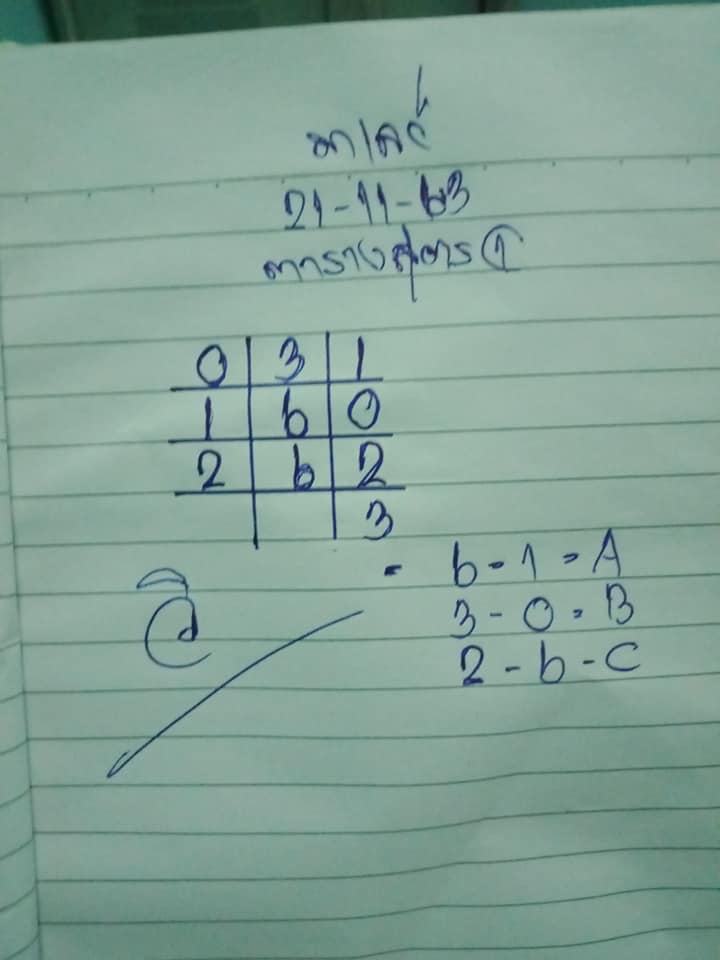 มาเลย์
21-11-63
ตารางสูตร 1
0 3 1
1 6 0
2 6 2
3
6-1=A
3-0=B
2-6-C